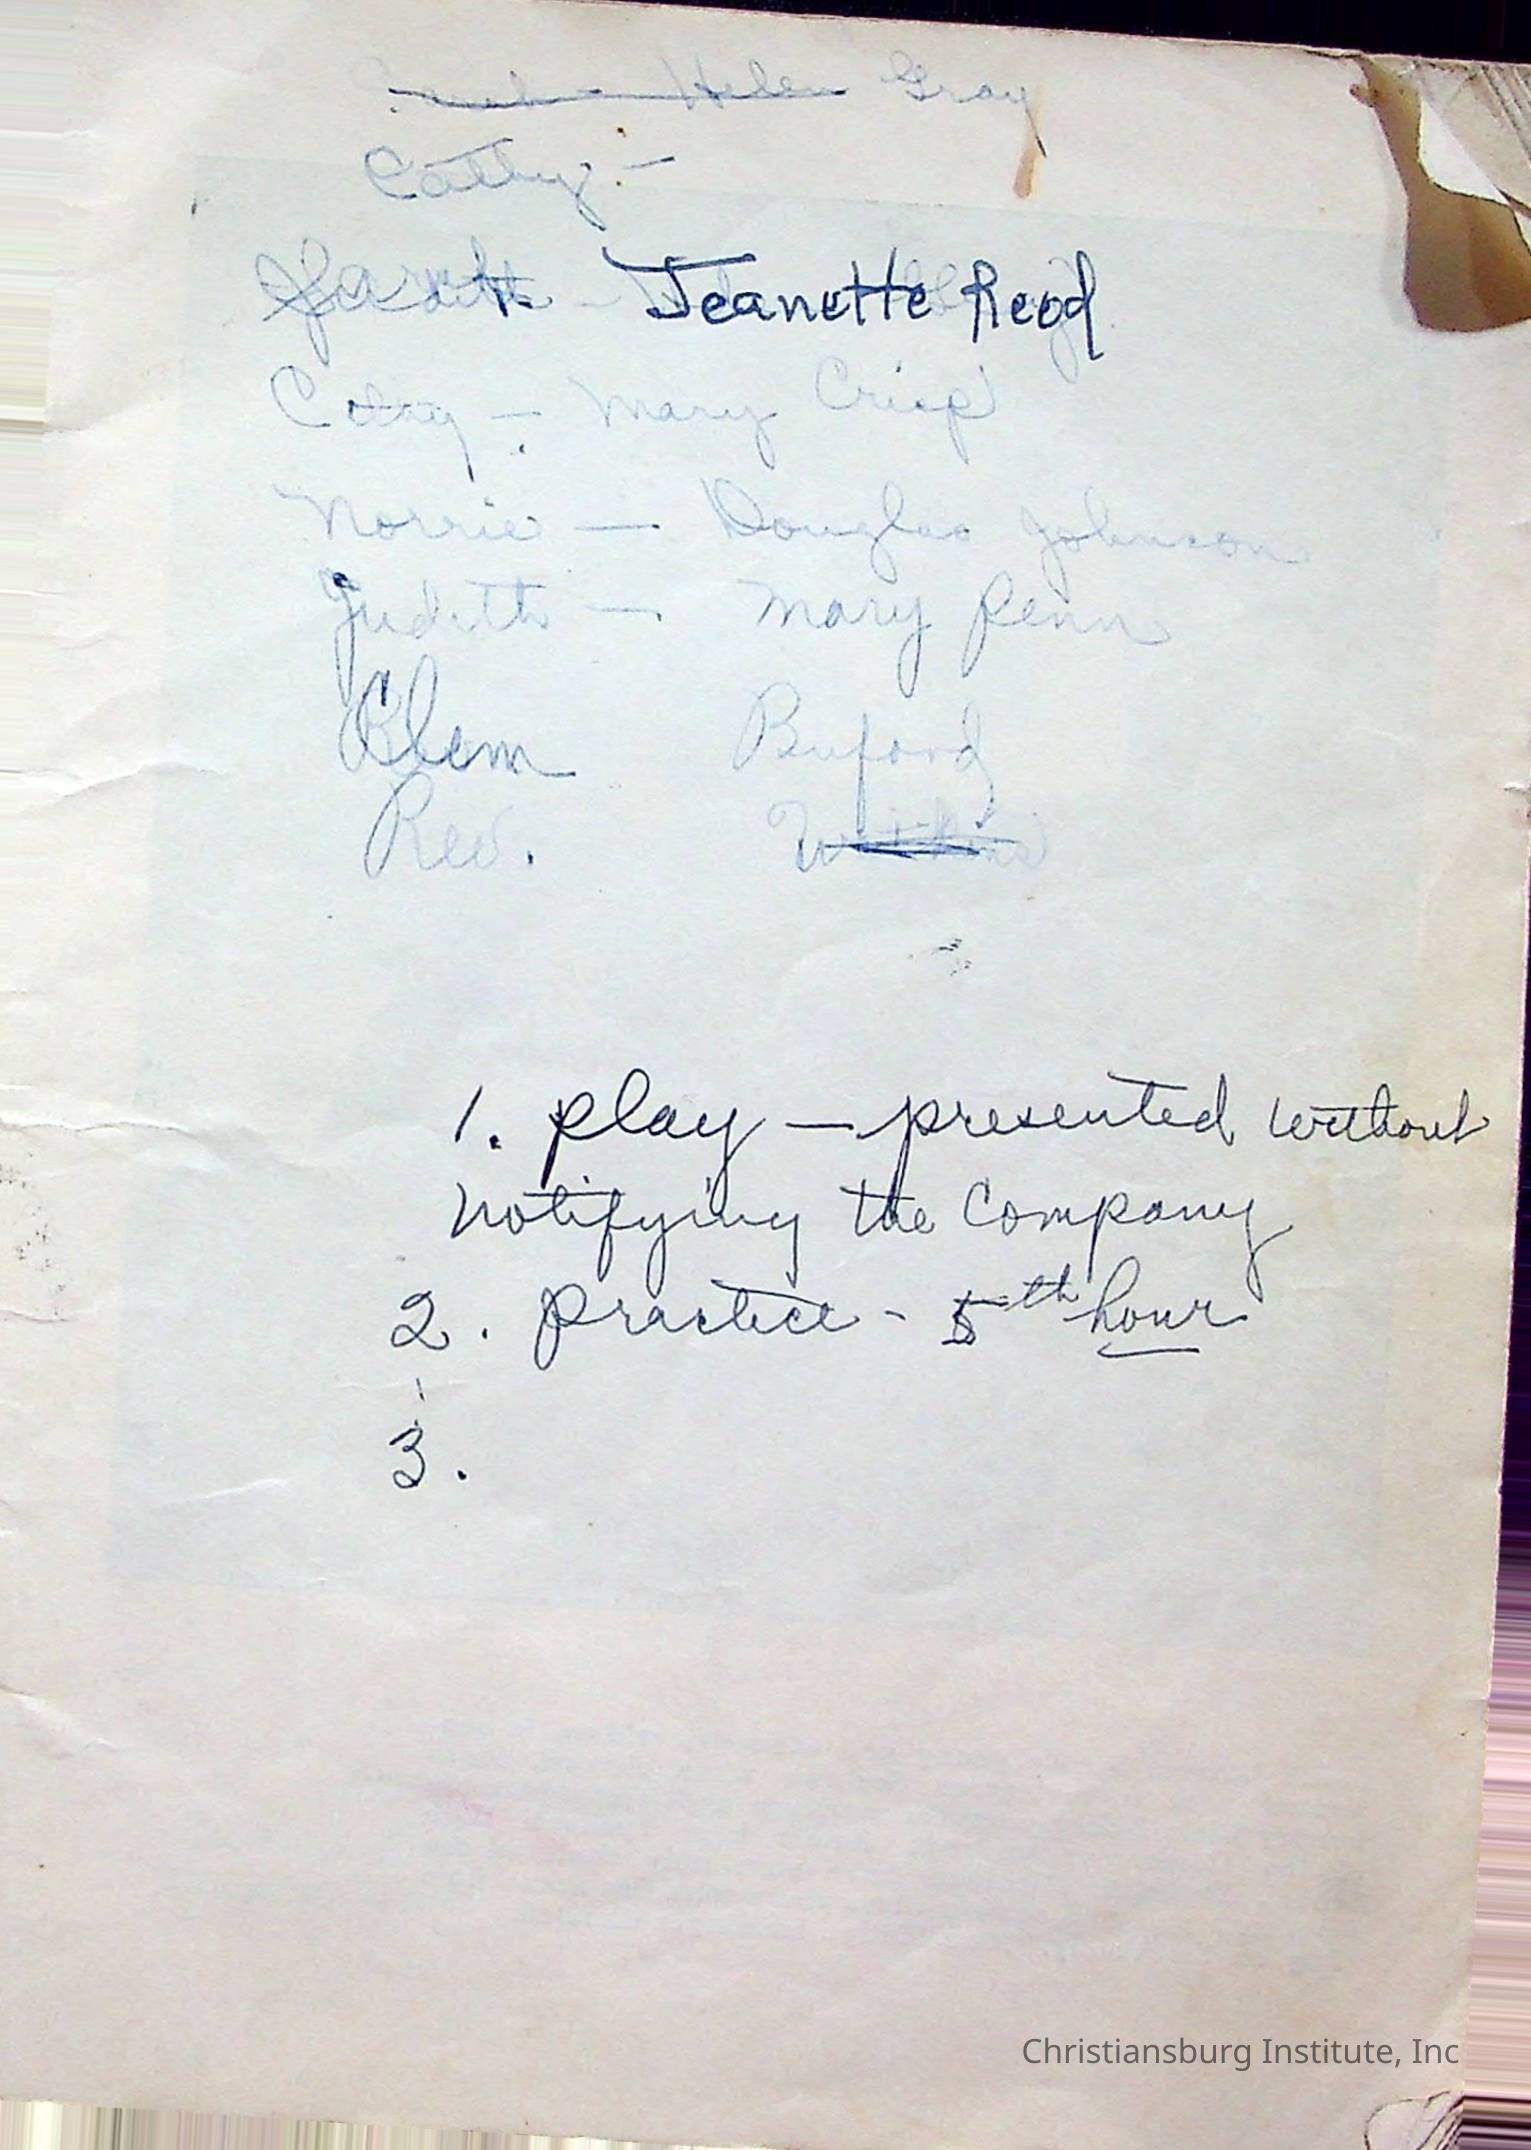 Helen Gray
Cathy: —
Sarah. Jeanette Reed
Cathy — Mary Crisp
Norrie — Douglas Johnson
Judith — Mary Penn
Clem Buford
Rev. Watkins
1. Play — presented without
notifying the Company
2. Practice - 5th hour
3.
Christiansburg Institute, Inc